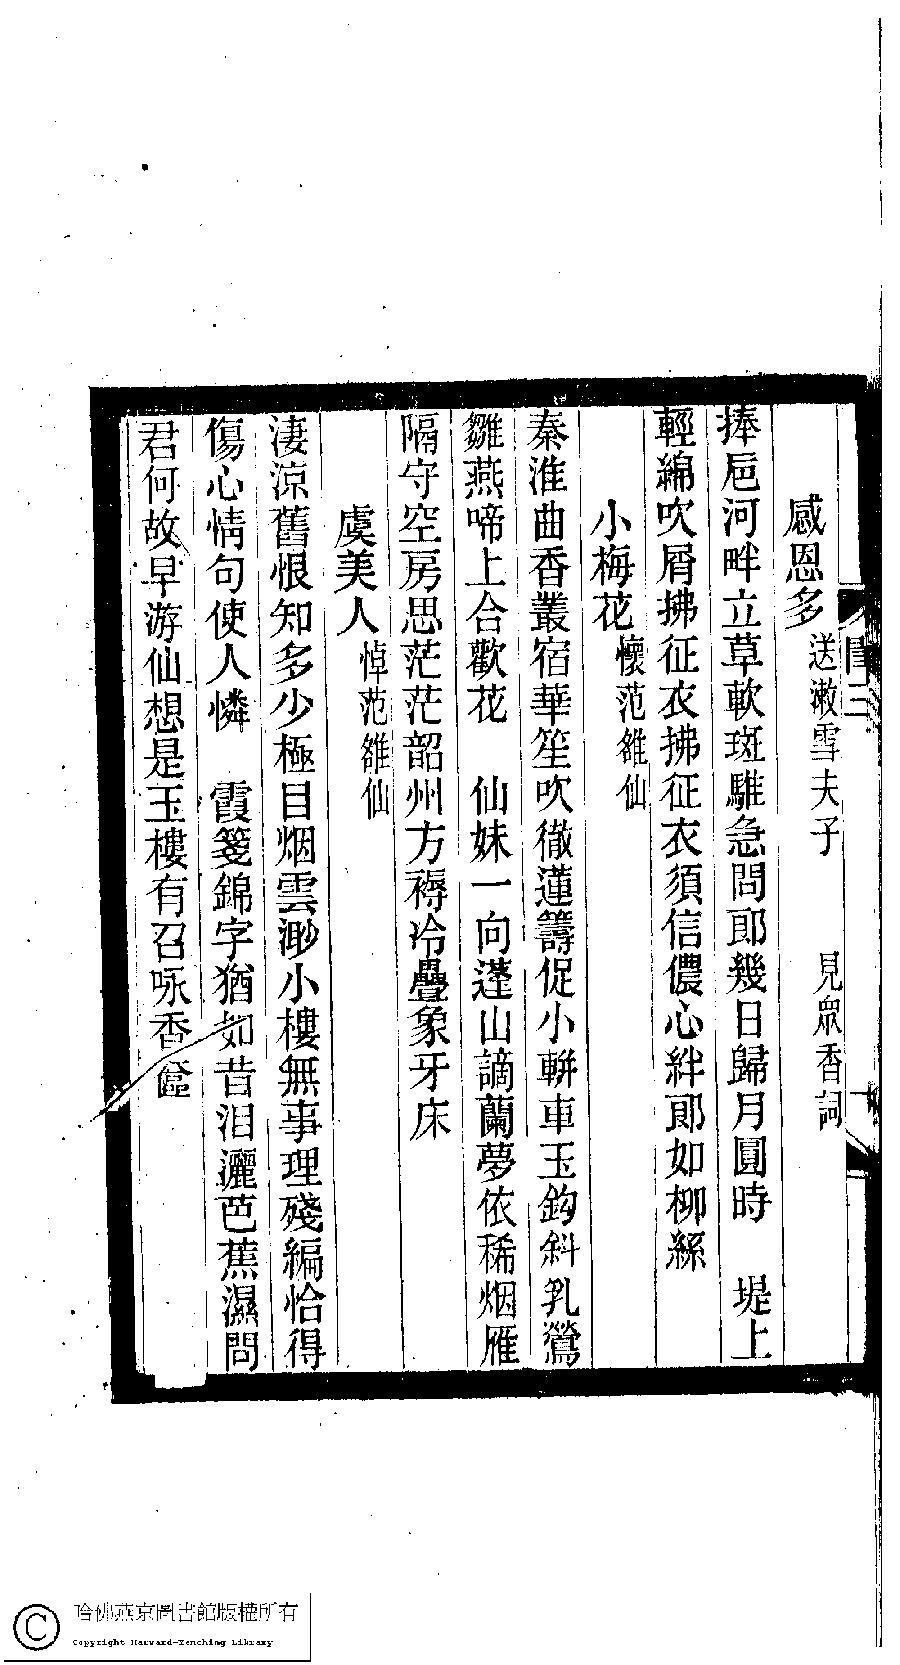 感恩多 送漱雪夫子 見眾香詞
捧巵河畔立草軟斑騅急問郎幾日歸月圓時　堤上
輕綿吹屑拂征衣拂征衣須信儂心絆郎如柳絲
小梅花 懷范雒仙
秦淮曲香叢宿華笙吹徹蓮籌促小輧車玉鈎斜乳鶯
雛燕啼上合歡花　仙妹一向蓬山謫蘭夢依稀烟雁
隔守空房思茫茫韶州方褥冷疊象牙床
虞美人 悼范雒仙
淒涼舊恨知多少極目烟雲渺小樓無事理殘編恰得
傷心情句使人憐　霞箋錦字猶如昔泪灑芭蕉濕問
君何故早游仙想是玉樓有召咏香奩
哈佛燕京圖書館版權所有
Copyright Harvard-Yenching Library